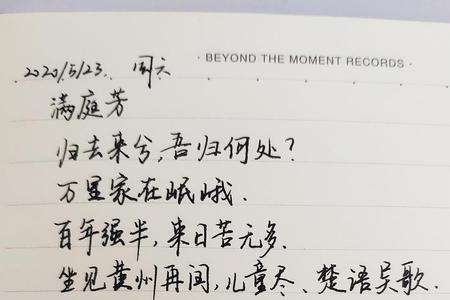 · BEYOND THE MOMENT RECORDS ·
2020/5/23. 周六
满庭芳
归去来兮,吾归何处?
万里家在岷峨.
百年强半,来日苦无多.
坐见黄州再闰,儿童尽、楚语吴歌.